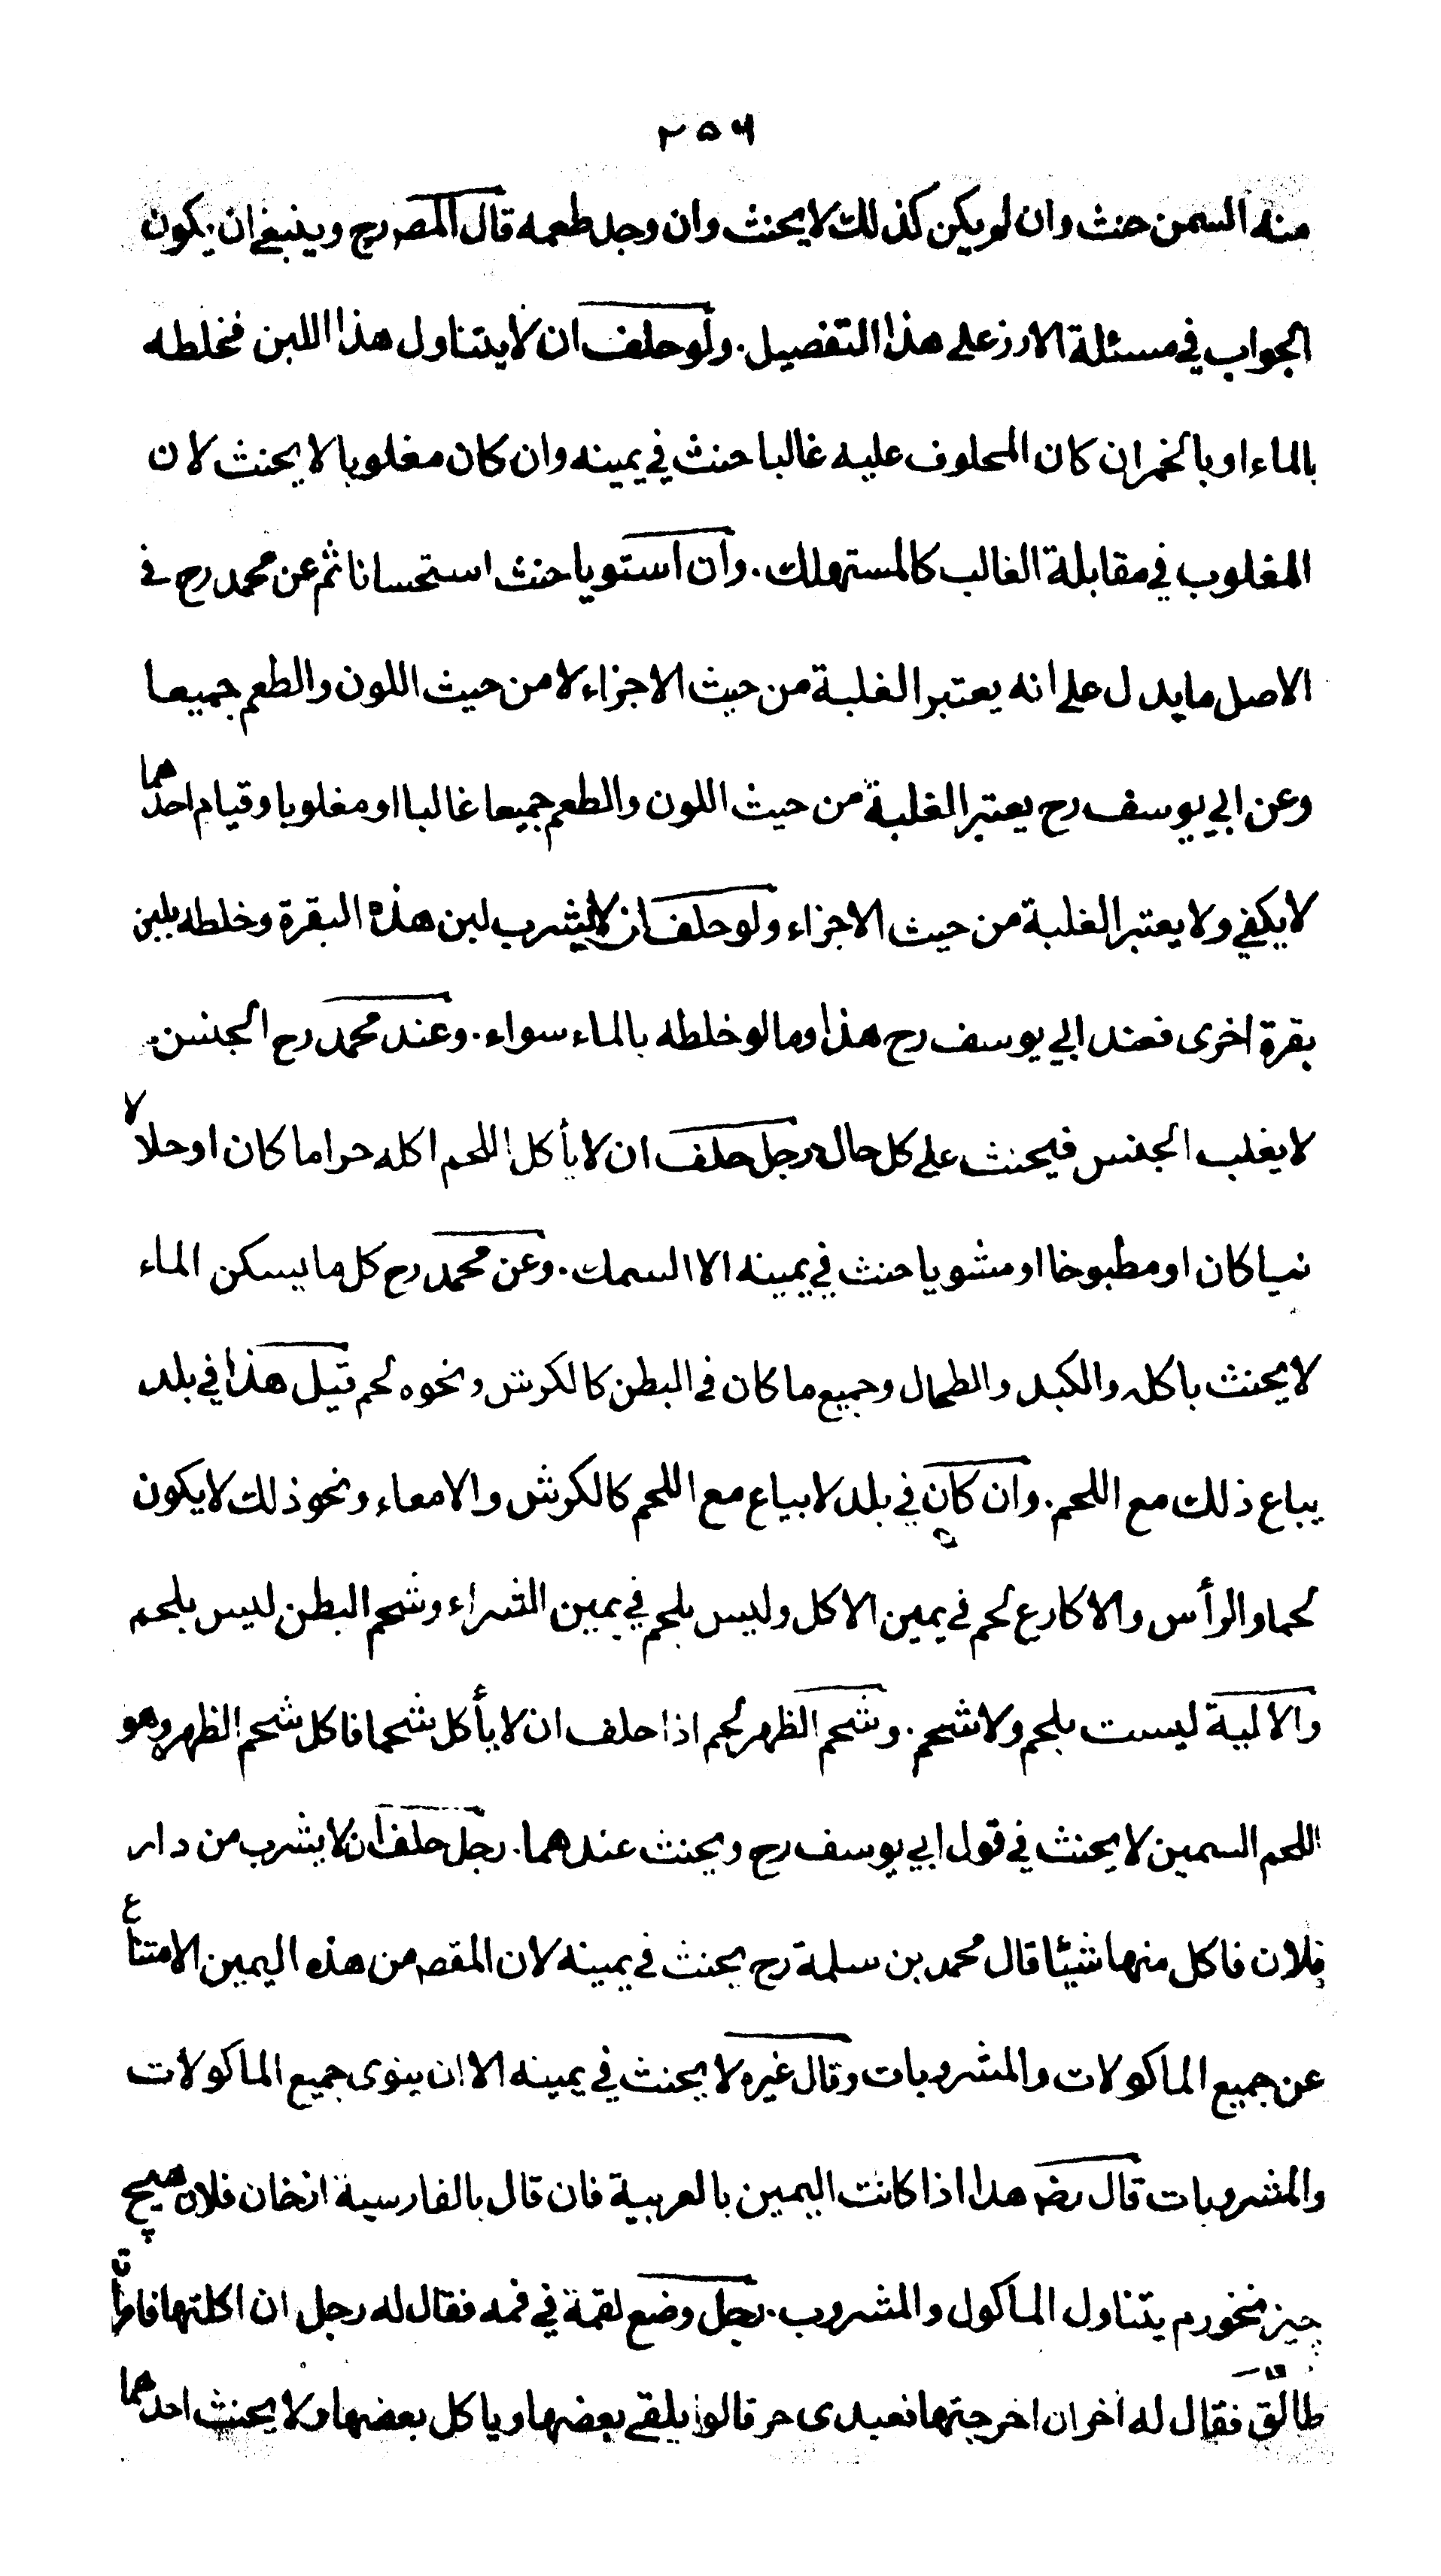 ٢٥٦
منه السمن حنث وان لم يكن كذلك لا يحنث وان وجد طعمه قال المصـ رح وينبغي ان يكون
الجواب في مسئلة الارز على هذا التفصيل. ولو حلف ان لا يتناول هذا اللبن فخلطه
بالماء او بالخمر ان كان المحلوف عليه غالبا حنث في يمينه وان كان مغلوبا لا يحنث لان
المغلوب في مقابلة الغالب كالمستهلك. وان استويا حنث استحسانا ثم عن محمد رح في
الاصل ما يدل على انه يعتبر الغلبة من حيث الاجزاء لا من حيث اللون والطعم جميعا
وعن ابي يوسف رح يعتبر الغلبة من حيث اللون والطعم جميعا غالبا او مغلوبا وقيام احدهما
لا يكفي ولا يعتبر الغلبة من حيث الاجزاء ولو حلف ان لا يشرب لبن هذه البقرة وخلطه بلبن
بقرة اخرى فعند ابي يوسف رح هذا وما لو خلطه بالماء سواء. وعند محمد رح الجنس
لا يغلب الجنس فيحنث على كل حال رجل حلف ان لا يأكل اللحم اكله حراما كان او حلالا
نيا كان او مطبوخا او مشويا حنث في يمينه الا السمك. وعن محمد رح كل ما يسكن الماء
لا يحنث باكله والكبد والطحال وجميع ما كان في البطن كالكرش ونحوه لحم قيل هذا في بلد
يباع ذلك مع اللحم. وان كان في بلد لا يباع مع اللحم كالكرش والامعاء ونحو ذلك لا يكون
لحما والرأس والاكارع لحم في يمين الاكل وليس بلحم في يمين الشراء وشحم البطن ليس بلحم
والالية ليست بلحم ولا شحم. وشحم الظهر لحم اذا حلف ان لا يأكل شحما فاكل شحم الظهر وهو
اللحم السمين لا يحنث في قول ابي يوسف رح ويحنث عندهما. رجل حلف ان لا يشرب من دار
فلان فاكل منها شيئا قال محمد بن سلمة رح يحنث في يمينه لان المقصـ من هذه اليمين الامتناع
عن جميع الماكولات والمشروبات وقال غيره لا يحنث في يمينه الا ان ينوى جميع الماكولات
والمشروبات قال رضـ هذا اذا كانت اليمين بالعربية فان قال بالفارسية از خان فلان هيچ
چيز نخورم يتناول الماكول والمشروب. رجل وضع لقمة في فمه فقال له رجل ان اكلتها فامرأته
طالق فقال له اخر ان اخرجتها فعبدى حر قالوا يلقي بعضها وياكل بعضها ولا يحنث احدهما